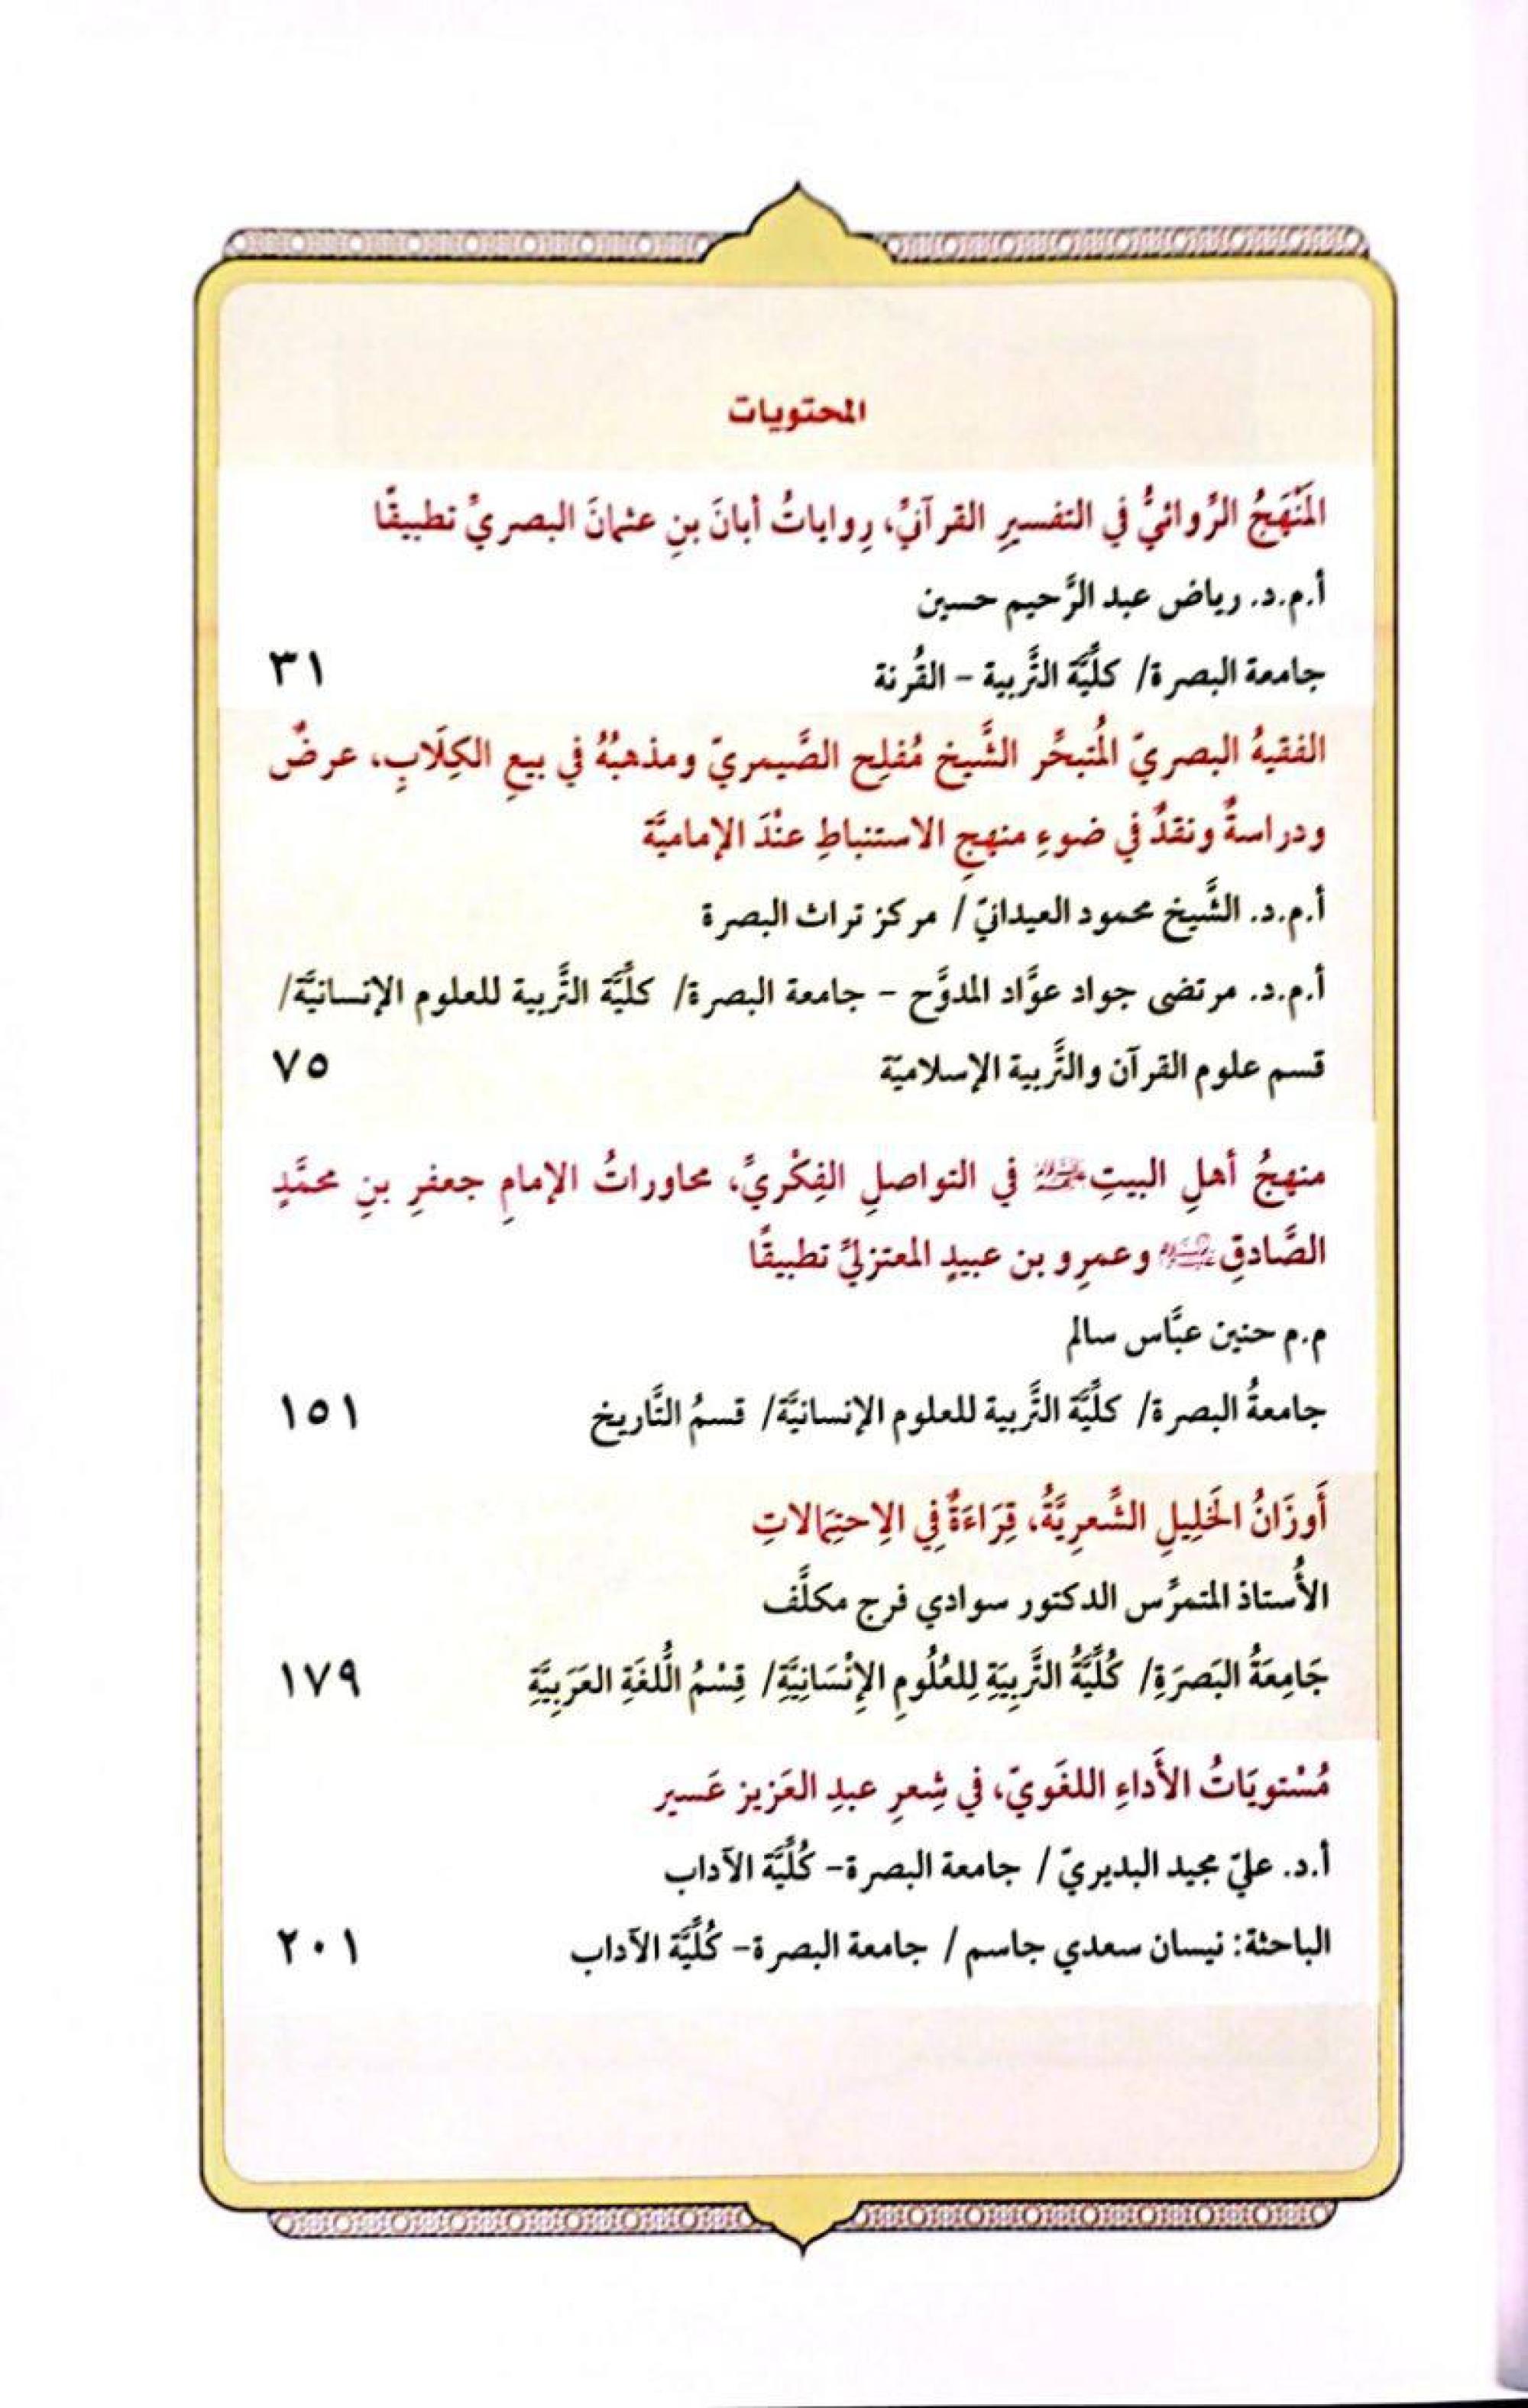 المحتويات
المَنْهَجُ الرِّوائيُّ في التفسيرِ القرآنيِّ، رِواياتُ أبانَ بنِ عثمانَ البصريِّ تطبيقًا
أ.م.د. رياض عبد الرَّحيم حسين
جامعة البصرة/ كلِّيَّة التَّربية – القُرنة ٣١
الفقيهُ البصريّ المُتبحِّر الشَّيخ مُفلِح الصَّيمريّ ومذهبُهُ في بيعِ الكِلَابِ، عرضٌ
ودراسةٌ ونقدٌ في ضوءِ منهجِ الاستنباطِ عنْدَ الإماميَّة
أ.م.د. الشَّيخ محمود العيدانيّ / مركز تراث البصرة
أ.م.د. مرتضى جواد عوَّاد المدوَّح – جامعة البصرة/ كلِّيَّة التَّربية للعلوم الإنسانيَّة/
قسم علوم القرآن والتَّربية الإسلاميّة ٧٥
منهجُ أهلِ البيتِ في التواصلِ الفِكْريِّ، محاوراتُ الإمامِ جعفرِ بنِ محمَّدٍ
الصَّادقِ وعمرِو بن عبيدٍ المعتزليِّ تطبيقًا
م.م حنين عبَّاس سالم
جامعةُ البصرة/ كلِّيَّة التَّربية للعلوم الإنسانيَّة/ قسمُ التَّاريخ ١٥١
أَوزَانُ الخَلِيلِ الشِّعرِيَّةُ، قِرَاءَةٌ فِي الِاحتِمَالاتِ
الأُستاذ المتمرِّس الدكتور سوادي فرج مكلَّف
جَامِعَةُ البَصرَةِ/ كُلِّيَّةُ التَّربِيَةِ لِلعُلُومِ الإِنْسَانِيَّةِ/ قِسْمُ اللُّغَةِ العَرَبِيَّةِ ١٧٩
مُسْتويَاتُ الأَداءِ اللغَويّ، في شِعرِ عبدِ العَزيز عَسير
أ.د. عليّ مجيد البديريّ / جامعة البصرة– كُلِّيَّة الآداب
الباحثة: نيسان سعدي جاسم / جامعة البصرة– كُلِّيَّة الآداب ٢٠١